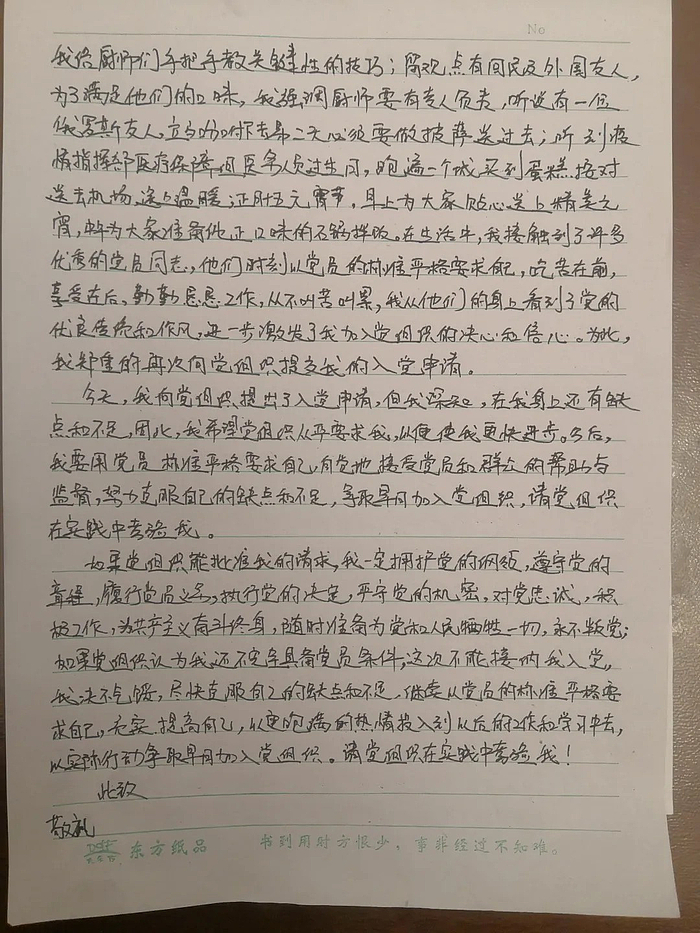 No
我给厨师们手把手教关键性的技巧；留观点有回民及外国友人，
为了满足他们的口味，我强调厨师要有专人负责，听说有一位
俄罗斯友人，立马吩咐下去第二天必须要做披萨送过去；听到疫
情指挥部医疗保障组医务人员过生日，跑遍一个城买到蛋糕接对
送去机场，送上温暖；正时五元宵节，早上为大家贴心送上精美元
宵，中午为大家准备地正口味的石锅拌饭。在生活中，我接触到了许多
优秀的党员同志，他们时刻以党员的标准严格要求自己，吃苦在前，
享受在后，勤勤恳恳工作，从不叫苦叫累，我从他们的身上看到了党的
优良传统和作风，进一步激发了我加入党组织的决心和信心。为此，
我郑重的再次向党组织提交我的入党申请。
今天，我向党组织提出了入党申请，但我深知，在我身上还有缺
点和不足，因此，我希望党组织从严要求我，以便使我更快进步。今后，
我要用党员标准严格要求自己，自觉地接受党员和群众的帮助与
监督，努力克服自己的缺点和不足，争取早日加入党组织，请党组织
在实践中考验我。
如果党组织能批准我的请求，我一定拥护党的纲领，遵守党的
章程，履行党员义务，执行党的决定，严守党的机密，对党忠诚，积
极工作，为共产主义奋斗终身，随时准备为党和人民牺牲一切，永不叛党；
如果党组织认为我还不完全具备党员条件，这次不能接纳我入党，
我决不气馁，尽快克服自己的缺点和不足，继续从党员的标准严格要
求自己，充实提高自己，以更饱满的热情投入到以后的工作和学习中去，
以实际行动争取早日加入党组织。请党组织在实践中考验我！
此致
敬礼
东方纸品 书到用时方恨少，事非经过不知难。